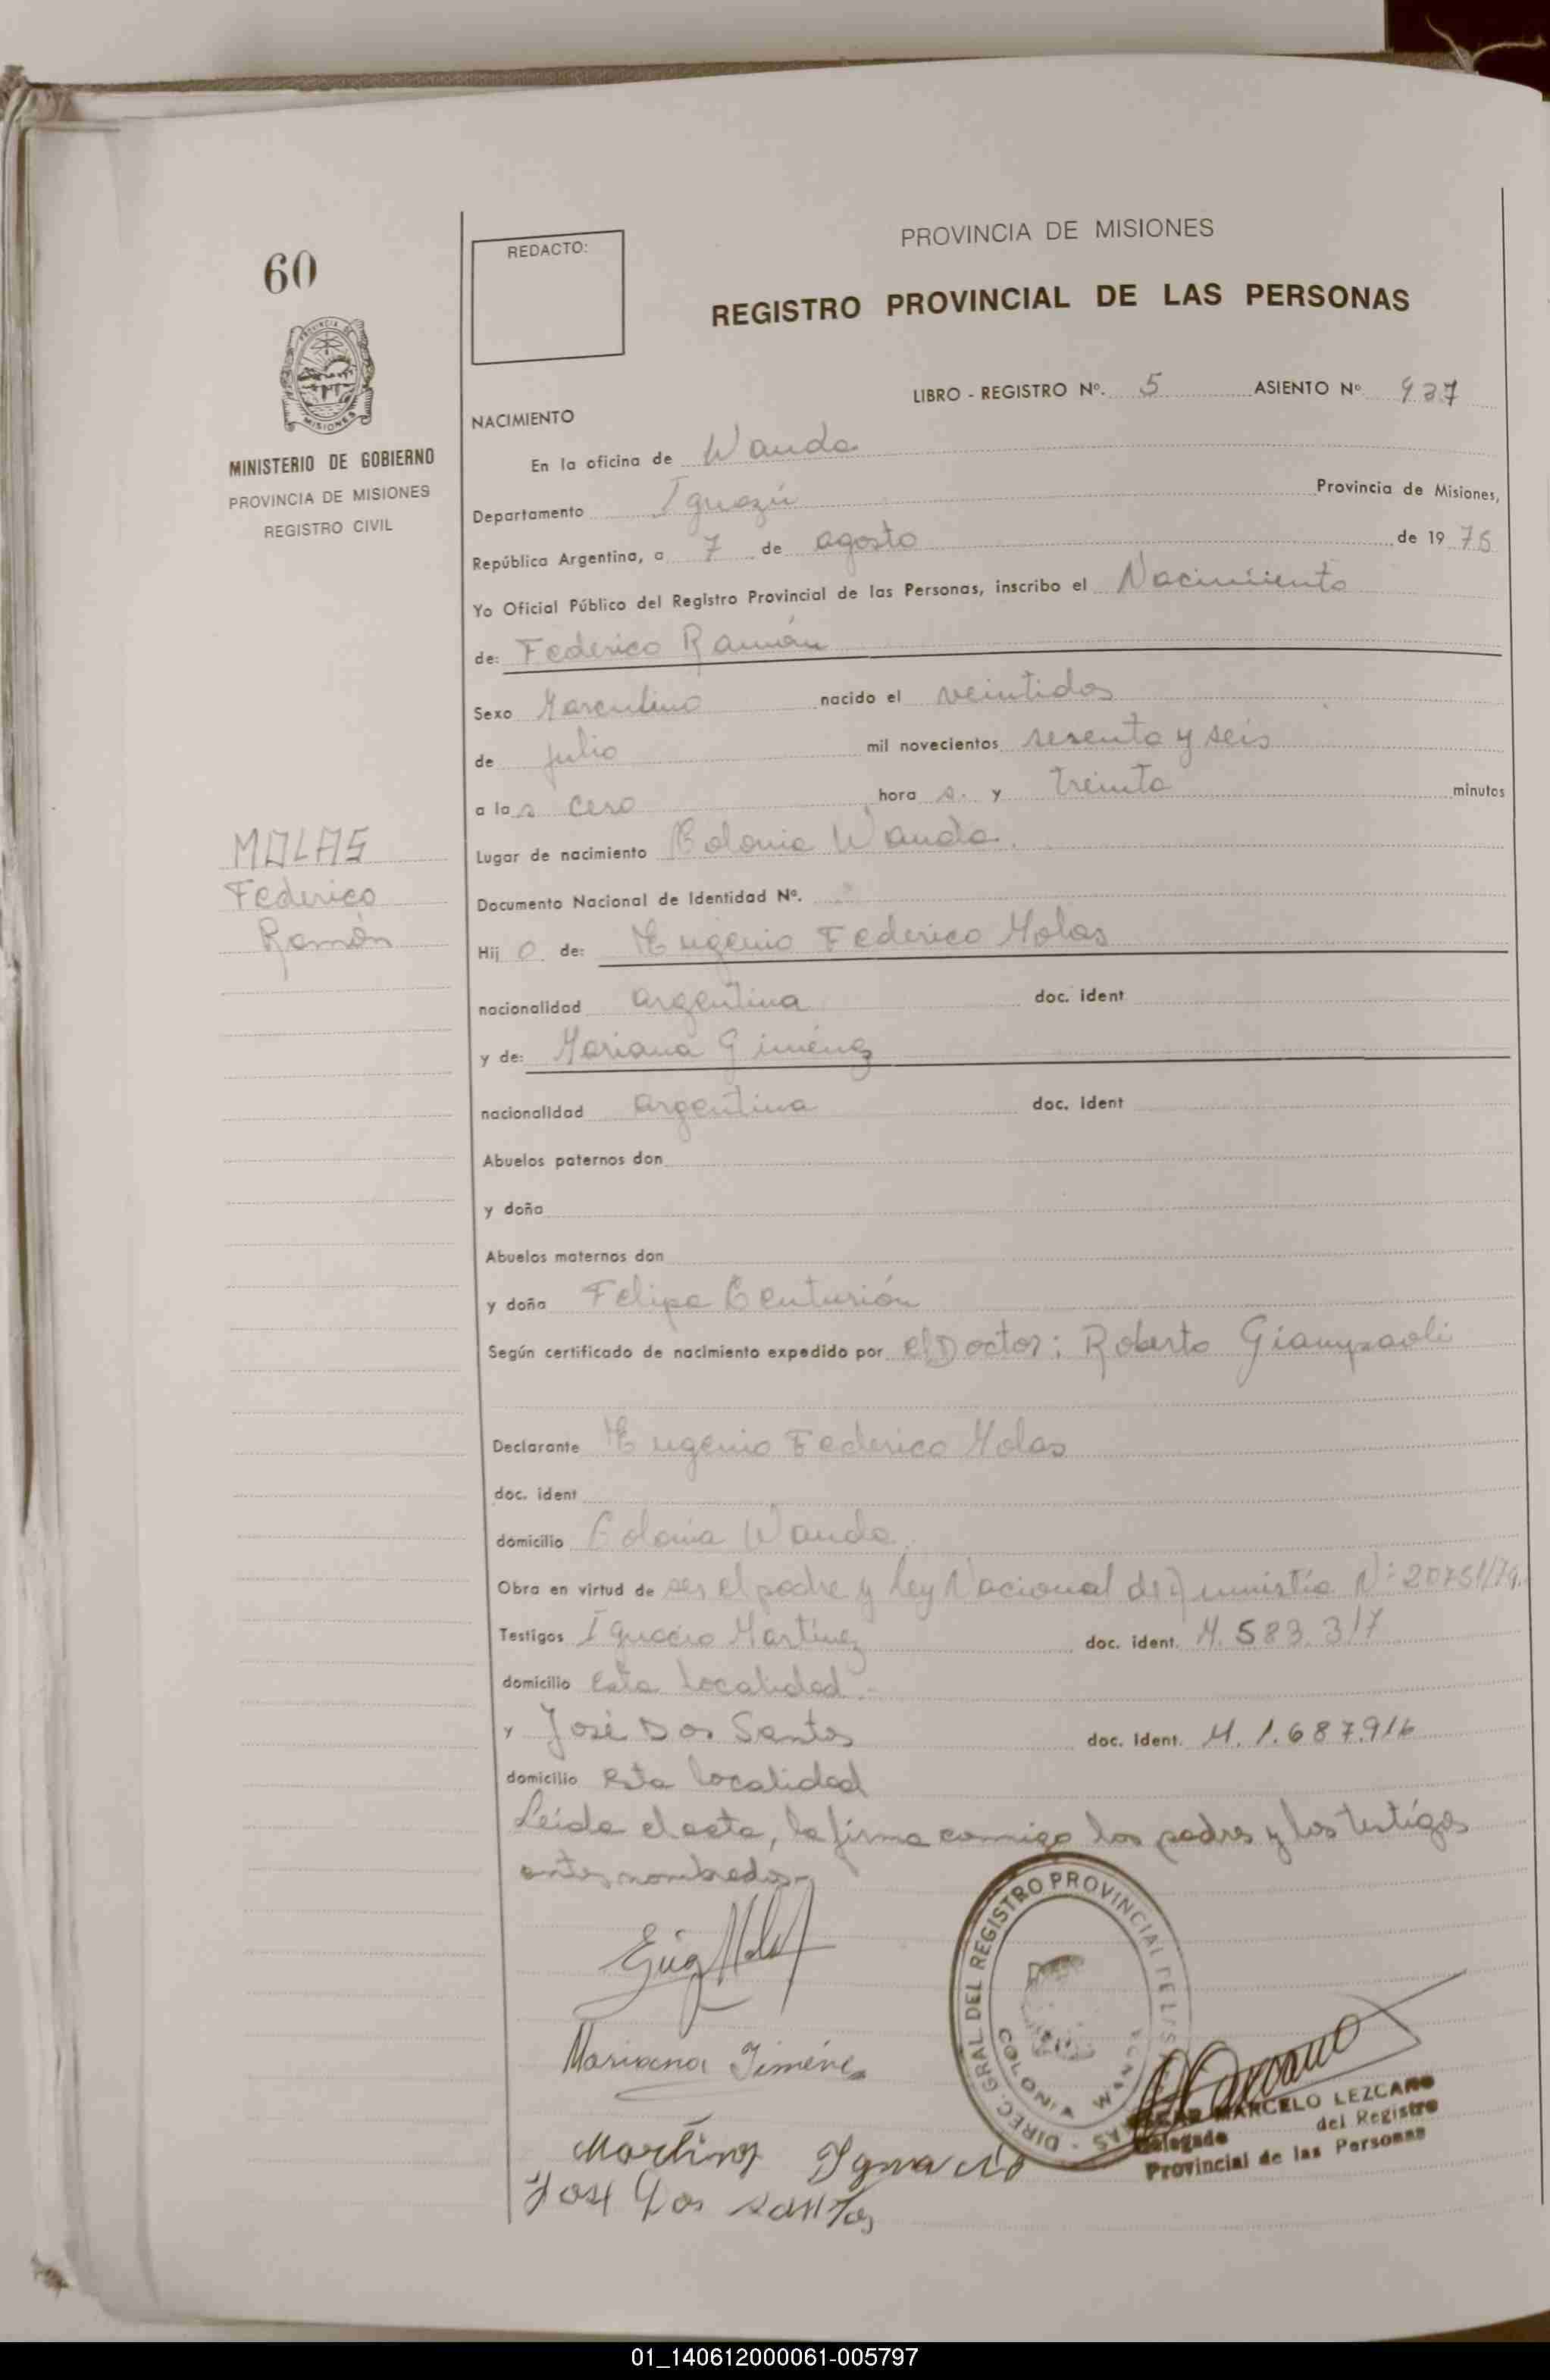 60
MINISTERIO DE GOBIERNO
PROVINCIA DE MISIONES
REGISTRO CIVIL
MOLAS
Federico
Ramón
REDACTO:
PROVINCIA DE MISIONES
REGISTRO PROVINCIAL DE LAS PERSONAS
LIBRO - REGISTRO Nº. 5 ASIENTO Nº 937
NACIMIENTO
En la oficina de Wanda
Departamento Iguazú Provincia de Misiones,
República Argentina, a 7 de agosto de 19 75
Yo Oficial Público del Registro Provincial de las Personas, inscribo el Nacimiento
de: Federico Ramón
Sexo Masculino nacido el veintidos
de julio mil novecientos sesenta y seis
a las cero hora s. y treinta minutos
Lugar de nacimiento Colonia Wanda.
Documento Nacional de Identidad Nº.
Hij o de: Eugenio Federico Molas
nacionalidad argentina doc. ident
y de: Mariana Giménez
nacionalidad argentina doc. ident
Abuelos paternos don
y doña
Abuelos maternos don
y doña Felipa Centurión
Según certificado de nacimiento expedido por el Doctor: Roberto Giampaoli
Declarante Eugenio Federico Molas
doc. ident
domicilio Colonia Wanda.
Obra en virtud de ser el padre y Ley Nacional de Amnistía Nº 20751/74.
Testigos Ignacio Martínez doc. ident. M. 583.317
domicilio esta localidad.-
y José Dos Santos doc. ident. M. 1.687.916
domicilio esta localidad
Leída el acta, la firma conmigo los padres y los testigos
antes nombrados-
Eug Molas
Mariana Jiménez
DIREC. GRAL. DEL REGISTRO PROVINCIAL DE LAS
COLONIA WANDA
MARCELO LEZCANO
Delegado del Registro
Provincial de las Personas
Martinez Ignacio
José Dos Santos
01_140612000061-005797